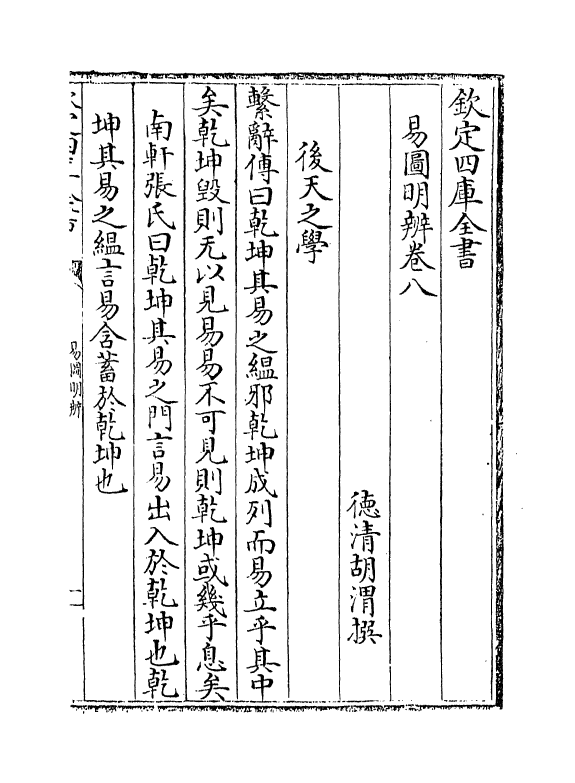 欽定四庫全書
易圖明辨卷八
德清胡渭撰
後天之學
繫辭傳曰乾坤其易之緼邪乾坤成列而易立乎其中
矣乾坤毀則无以見易易不可見則乾坤或幾乎息矣
南軒張氏曰乾坤其易之門言易出入於乾坤也乾
坤其易之緼言易含蓄於乾坤也
易圖明辨